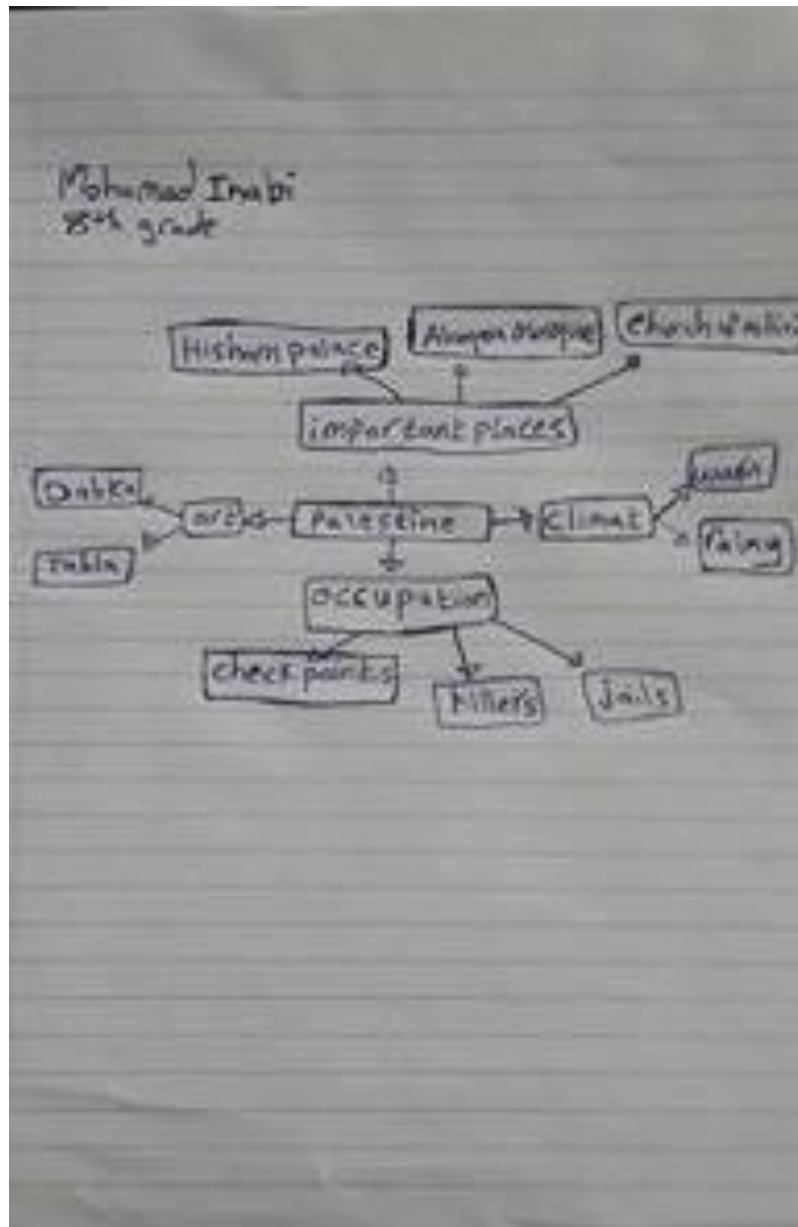 Mohamad Inabi
8th grade
Hisham palace
mosque
Church
important places
Dabka
art
Palestine
Climat
rainy
Tabla
occupation
check points
killers
jails